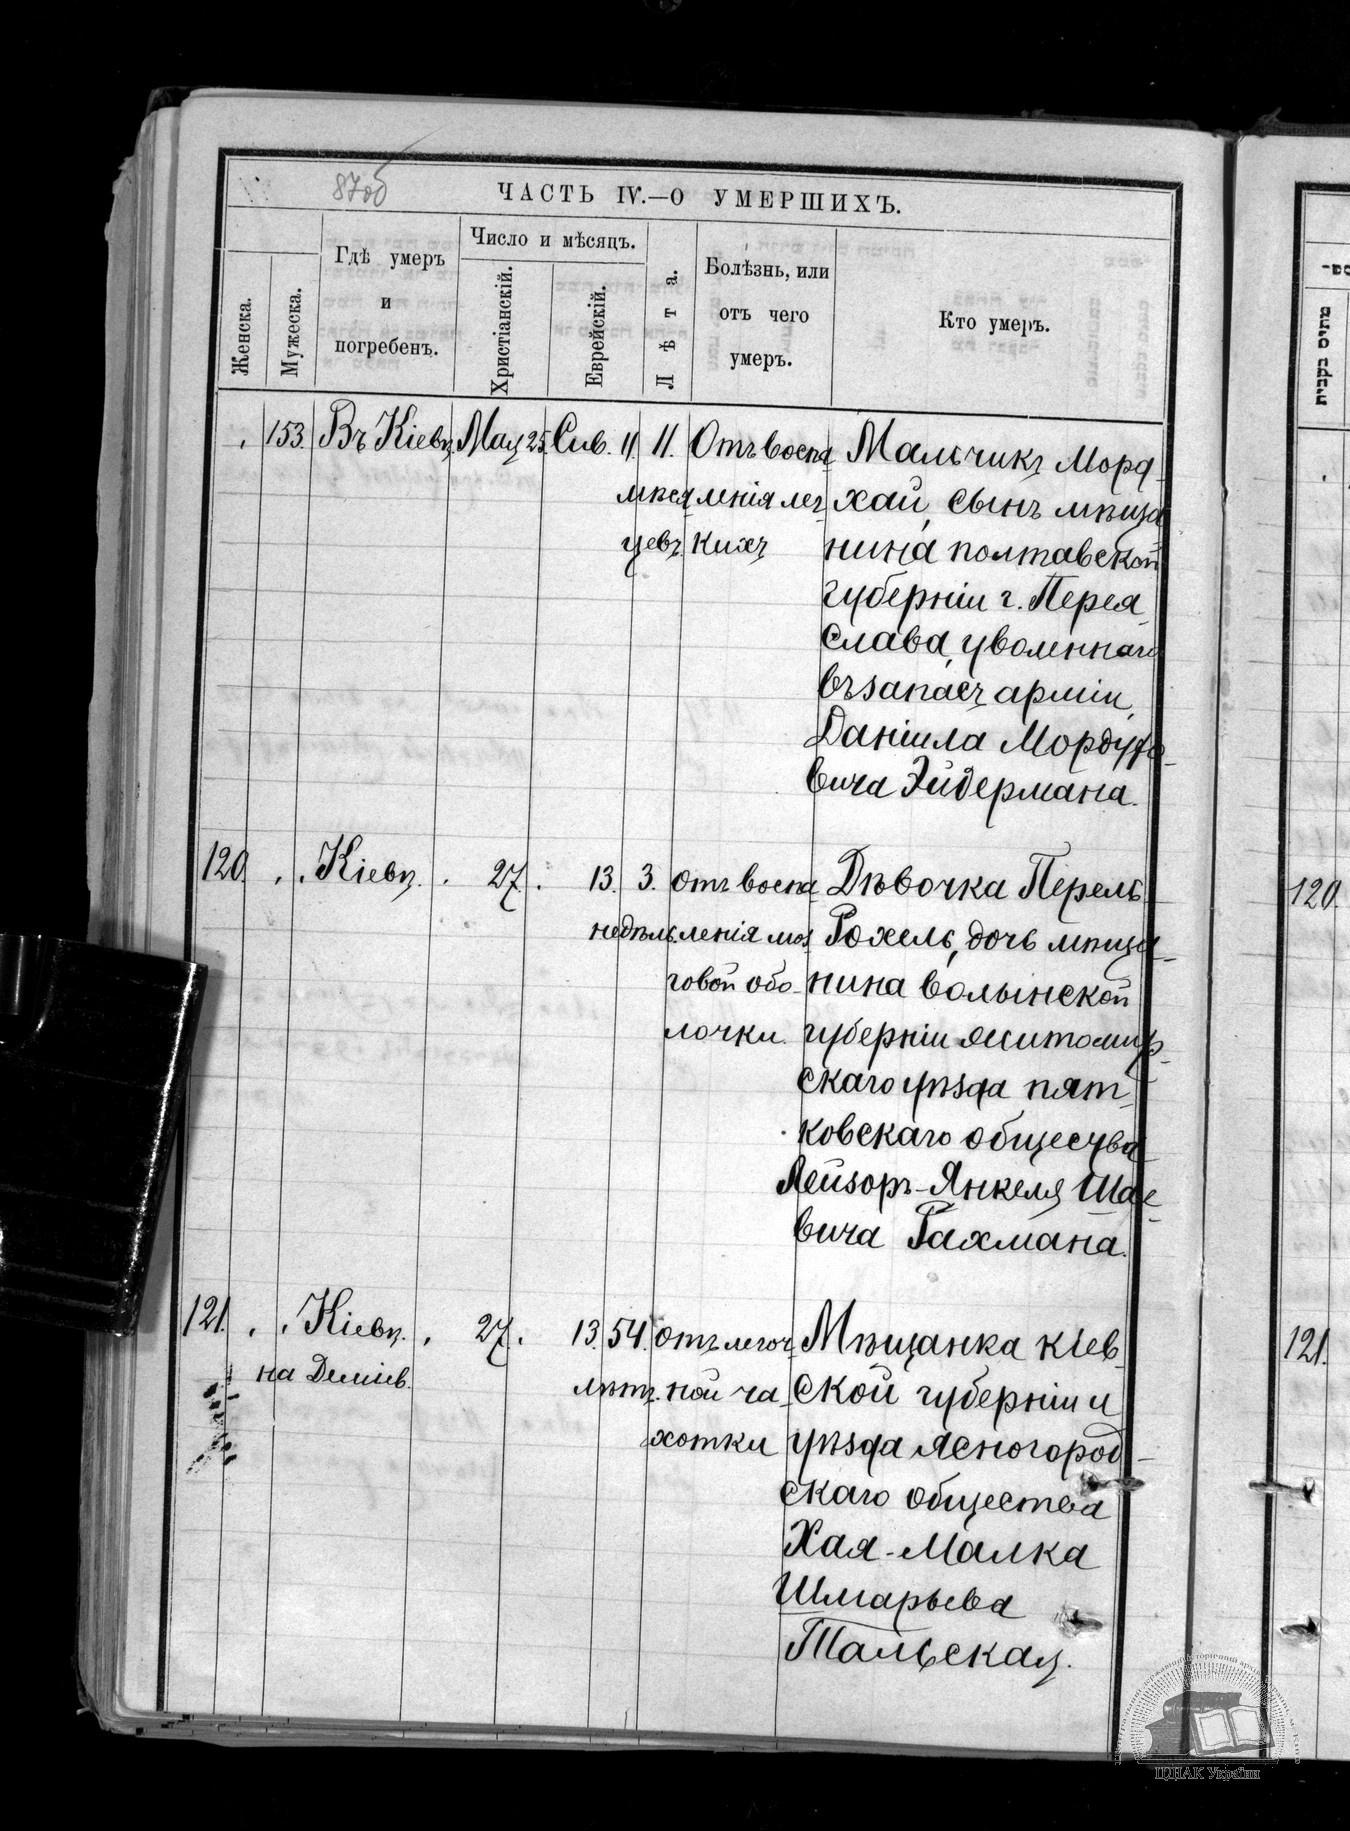 87об
ЧАСТЬ IV.—О УМЕРШИХЪ.
Женска.
Мужеска.
Гдѣ умеръ
и
погребенъ.
Число и мѣсяцъ.
Христіанскій.
Еврейскій.
Лѣта.
Болѣзнь, или
отъ чего
умеръ.
Кто умеръ.
153. Въ Кіевѣ Мая 25. Сив. 11. 11. Отъ воспа Мальчикъ Морд-
мѣся ленія лег хай, сынъ мѣща
цевъ кихъ нина полтавской
губерніи г. Перея
слава, уволеннаго
въ запасъ арміи,
Даніила Мордухо-
вича Эйдермана.
120. Кіевѣ. 27. 13. 3. отъ воспа Дѣвочка Перель
недѣль ленія моз Рохель, дочь мѣща-
говой обо- нина волынской
лочки. губерніи житомир-
скаго уѣзда пят-
ковскаго общества
Лейзоръ-Янкеля Шае-
вича Рахмана.
121. Кіевѣ. 27. 13. 54. отъ легоч- Мѣщанка кіев-
на Деміев. лѣтъ. ной ча- ской губерніи и
хотки уѣзда ясногород-
скаго общества
Хая-Малка
Шмарьева
Тальская.
120.
121.
ЦДІАК України